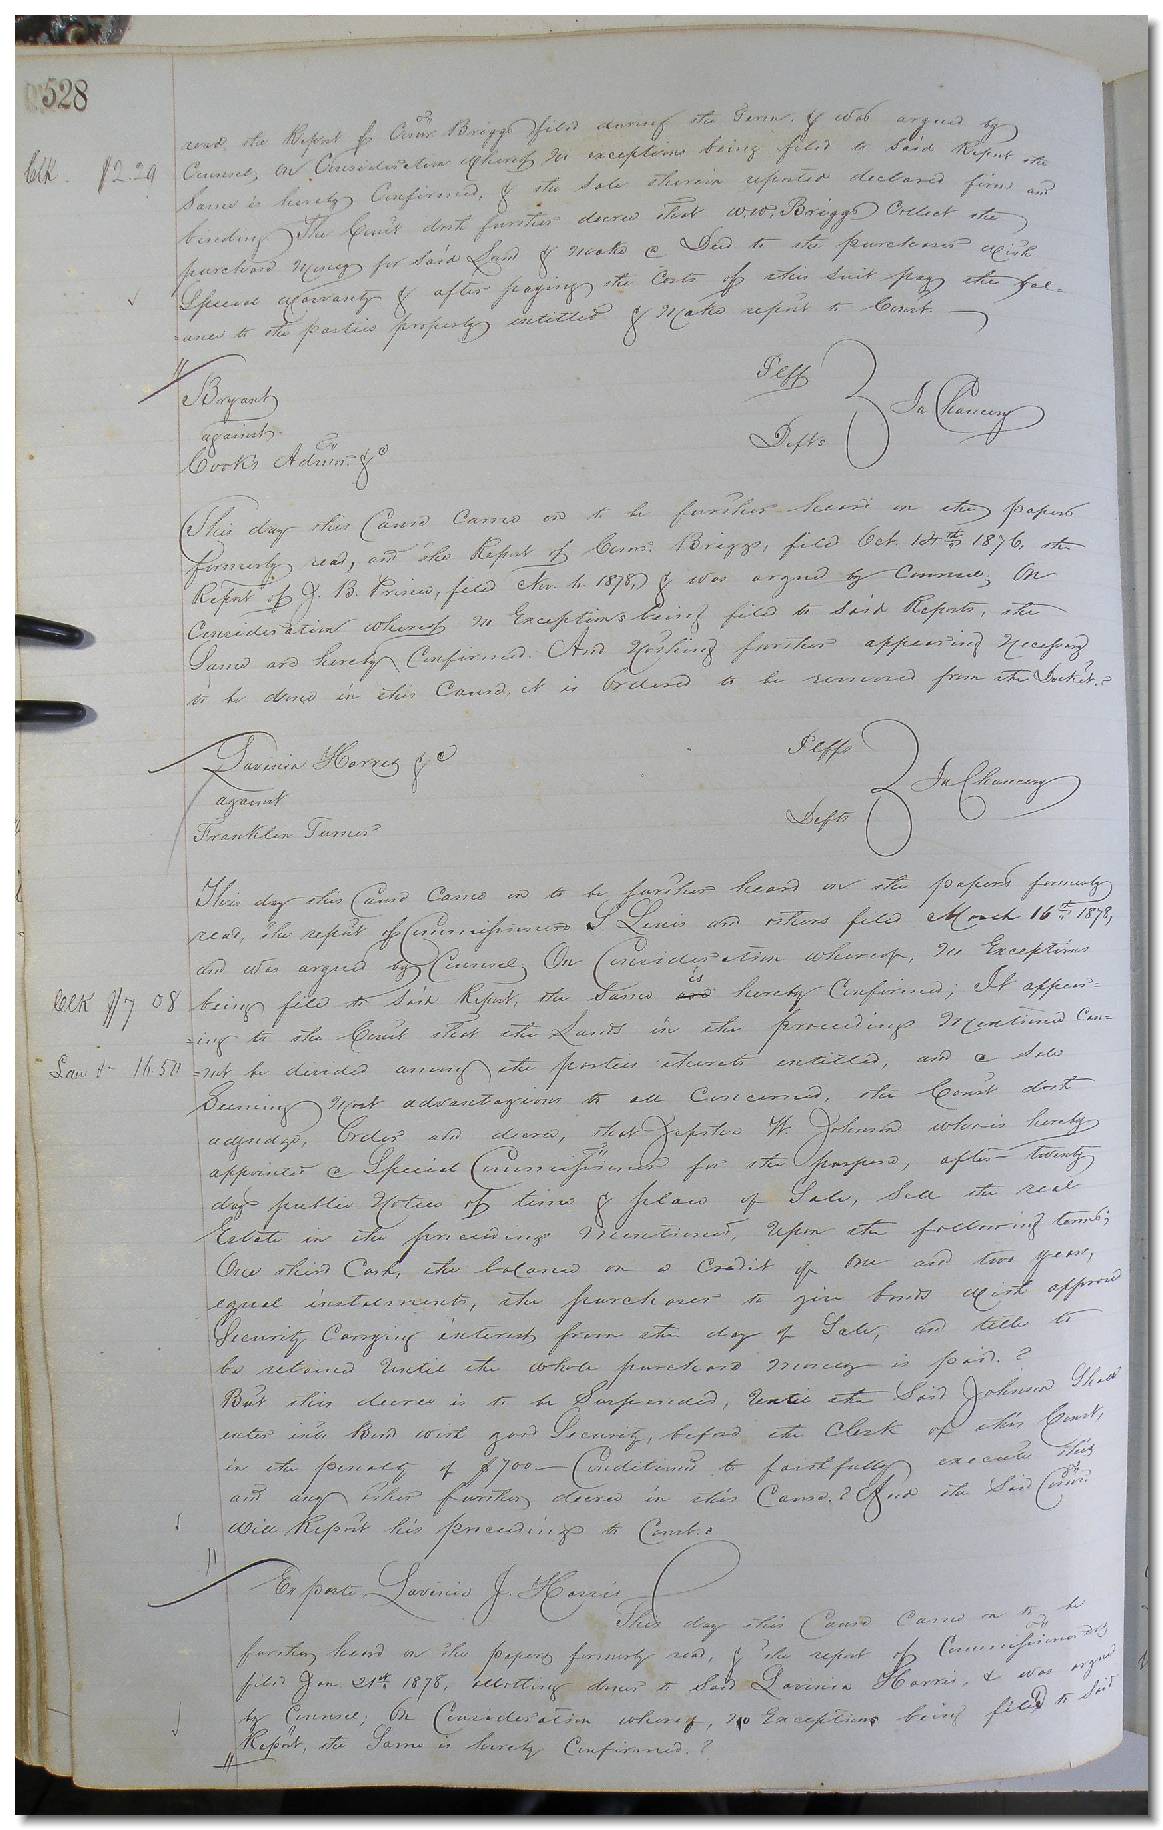 528
read, the Report of Comr. Briggs filed during the Term, & was argued by
Clk. $2.29
Counsel, On Consideration whereof no exceptions being filed to Said Report the
Same is hereby Confirmed, & the Sale therein reported declared firm and
binding The Court doth further decree that W.W. Briggs Collect the
purchase Money for Said Land & Make a Deed to the purchaser with
Special Warranty & after paying the Costs of this Suit pay the bal-
-ance to the parties properly entitled & Make report to Court.
Bryant Plff
against In Chancery
Cooks Admr. &c Defts
This day this Cause Came on to be further heard on the papers
formerly read, and the Report of Comr. Briggs, filed Oct. 1876, the
Report of J. B. Prince, filed Nov. 1. 1878, & was argued by Counsel, On
Consideration whereof no Exceptions being filed to Said Reports, the
Same are hereby Confirmed. And Nothing further appearing Necessary
to be done in this Cause, it is Ordered to be removed from the Docket.
Lavinia Harris &c Plffs
against In Chancery
Franklin Turner Defts
This day this Cause Came on to be further heard on the papers formerly
read, the report of Commissioners S Lewis and others filed March 16th 1878,
and was argued by Counsel, On Consideration whereof, no Exceptions
Clk $7 08
being filed to Said Report, the Same is hereby Confirmed; It appear-
-ing to the Court that the Lands in the proceedings Mentioned Can-
16.50
-not be divided among the parties thereto entitled, and a Sale
Seeming Most advantageous to all Concerned, the Court doth
adjudge, Order and decree, that W. Johnson who is hereby
appointed a Special Commissioner for the purpose, after twenty
days public Notice of time & place of Sale, Sell the real
Estate in the proceedings Mentioned, Upon the following terms;
One third Cash, the balance on a Credit of One and two years,
equal instalments, the purchaser to give bonds with approved
Security Carrying interest from the day of Sale, and title to
be retained Until the whole purchase Money is paid.
But this decree is to be Suspended, Until the Said Johnson Shall
enter into Bond with good Security, before the Clerk of this Court,
in the penalty of $700— Conditioned to faithfully execute this
and any other further decree in this Cause. And the Said Comr.
Will Report his proceedings to Court.
Ex parte Lavinia J. Harris
This day this Cause Came on to be
further heard on the papers formerly read, & the report of Commissioners
filed Jan. 21st 1878, allotting dower to Said Lavinia Harris, & was argued
by Counsel; On Consideration whereof, no Exceptions being filed to Said
Report, the Same is hereby Confirmed.